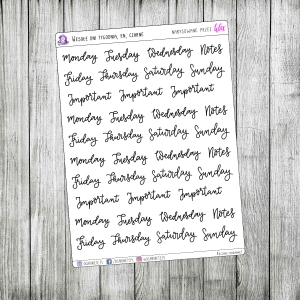 WĄSKIE DNI TYGODNIA, EN, CZARNE
NARYSOWANE PRZEZ
Monday Tuesday Wednesday Notes
Friday Thursday Saturday Sunday
Important Important Important
Monday Tuesday Wednesday Notes
Friday Thursday Saturday Sunday
Monday Tuesday Wednesday Notes
Friday Thursday Saturday Sunday
Important Important Important
Monday Tuesday Wednesday Notes
Friday Thursday Saturday Sunday